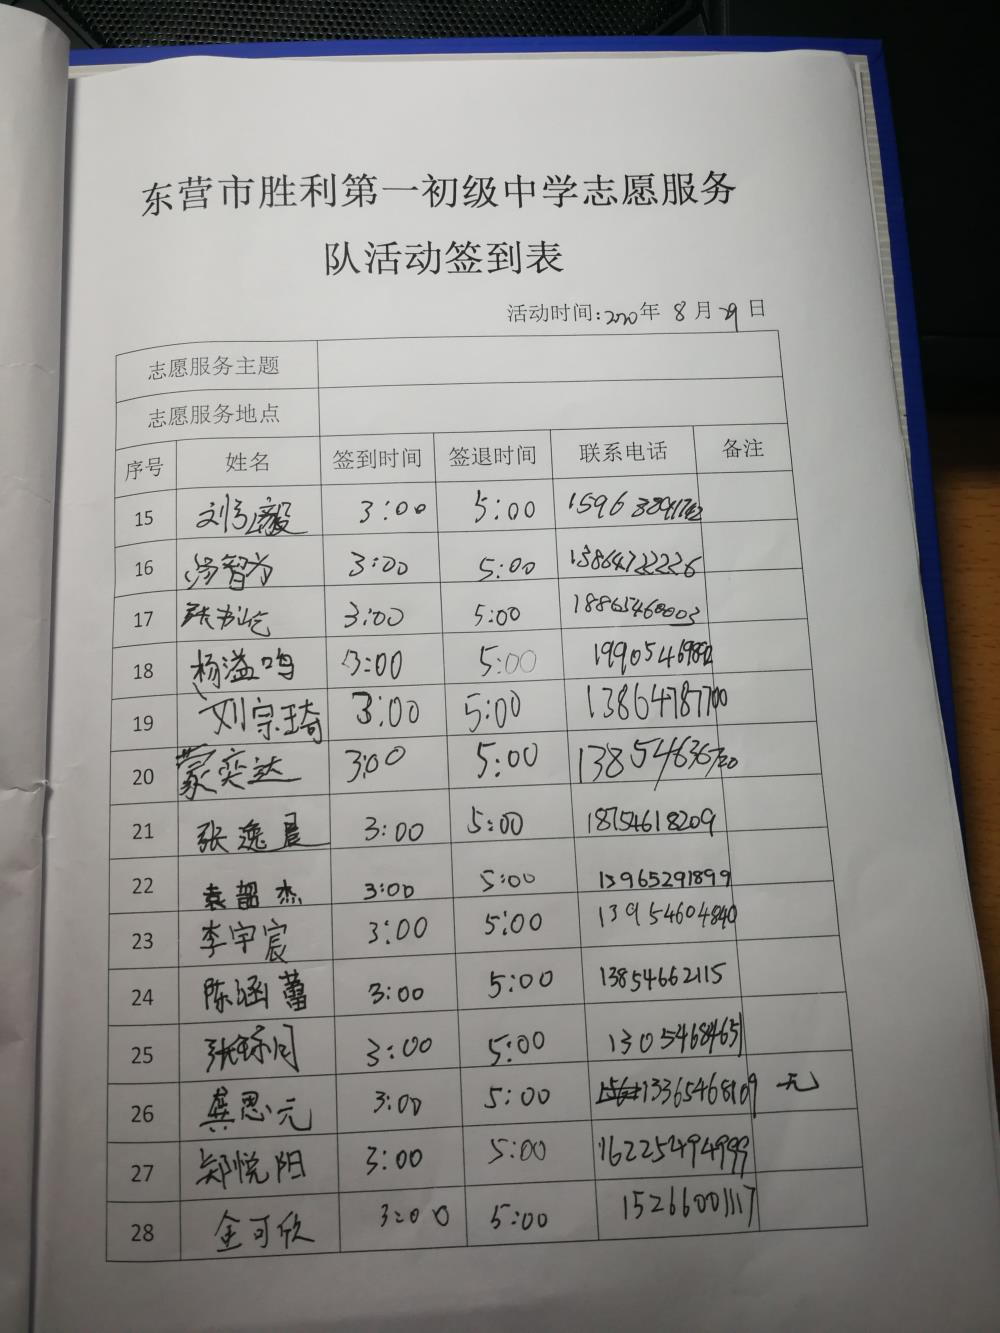 东营市胜利第一初级中学志愿服务
队活动签到表
活动时间:2020年 8月29日
志愿服务主题
志愿服务地点
序号 姓名 签到时间 签退时间 联系电话 备注
15 3:00 5:00
16 3:00 5:00 13864722226
17 3:00 5:00 18865460003
18 杨溢鸣 3:00 5:00
19 刘宗琦 3:00 5:00 13864787700
20 蒙奕达 3:00 5:00
21 张逸晨 3:00 5:00 18754618209
22 袁韶杰 3:00 5:00 13965291899
23 李宇宸 3:00 5:00 13954604840
24 陈涵蕾 3:00 5:00 13854662115
25 3:00 5:00 13054684651
26 龚思元 3:00 5:00 13365468109 无
27 郑悦阳 3:00 5:00 16225494999
28 金可欣 3:00 5:00 15266001117